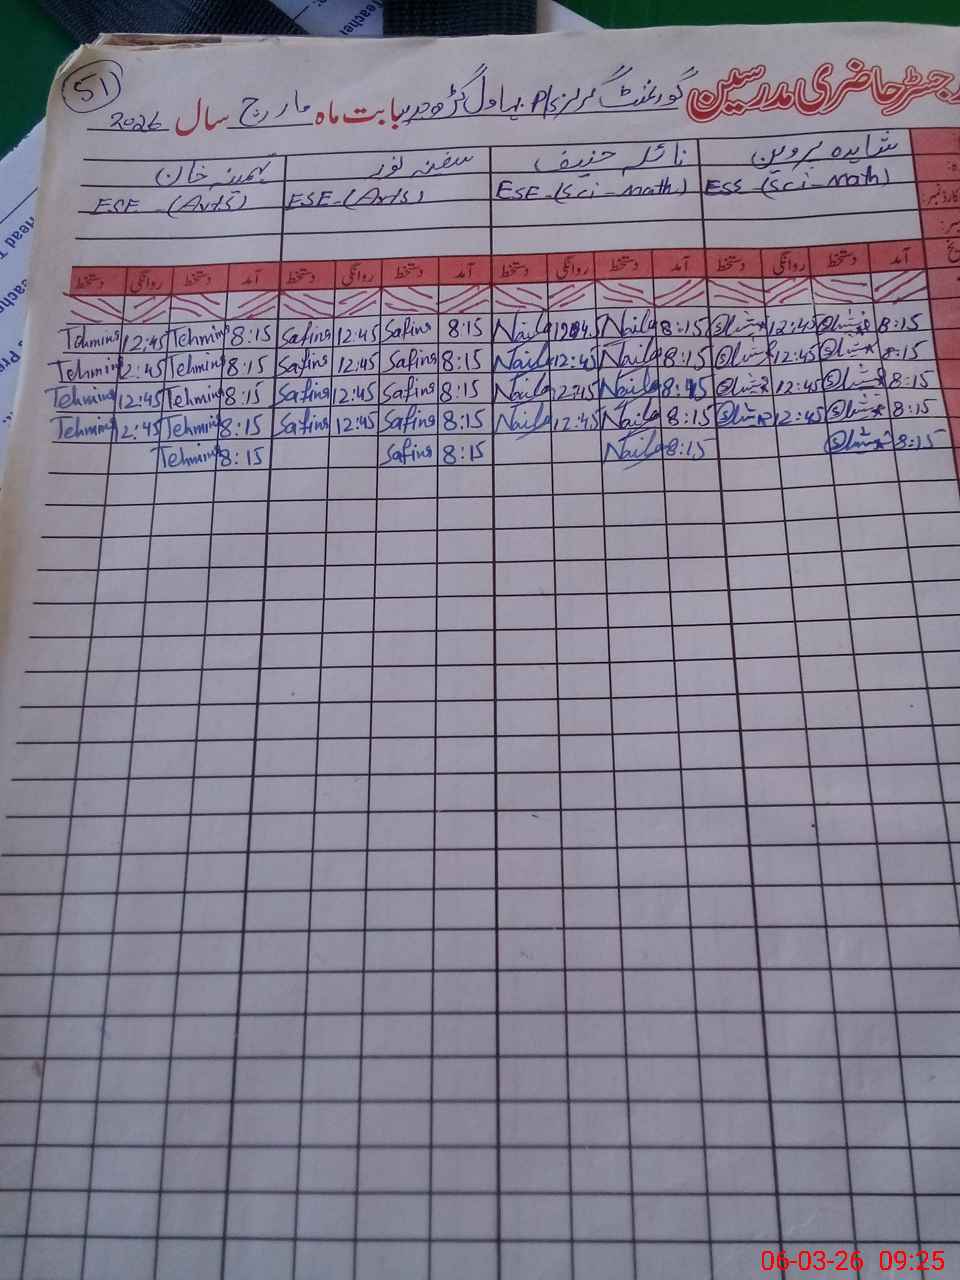 51
رجسٹر حاضری مدرسین گورنمنٹ گرلز P/S بہاول گڑھ بابت ماہ مارچ سال 2026
شاہدہ پروین نائلہ حنیف سفینہ نور تہمینہ خان
ESS (Sci-Math) ESE (Sci-Math) ESE (Arts) ESE (Arts)
آمد دستخط روانگی دستخط آمد دستخط روانگی دستخط آمد دستخط روانگی دستخط آمد دستخط روانگی دستخط
8:15 12:45 8:15 Naila Naila 8:15 Safina 12:45 Safina 8:15 Tehmina 12:45 Tehmina
8:15 12:45 8:15 Naila 12:45 Naila 8:15 Safina 12:45 Safina 8:15 Tehmina 12:45 Tehmina
8:15 12:45 Naila 12:45 Naila 8:15 Safina 12:45 Safina 8:15 Tehmina 12:45 Tehmina
8:15 12:45 8:15 Naila 12:45 Naila 8:15 Safina 12:45 Safina 8:15 Tehmina 12:45 Tehmina
8:15 8:15 Naila 8:15 Safina 8:15 Tehmina
06-03-26 09:25